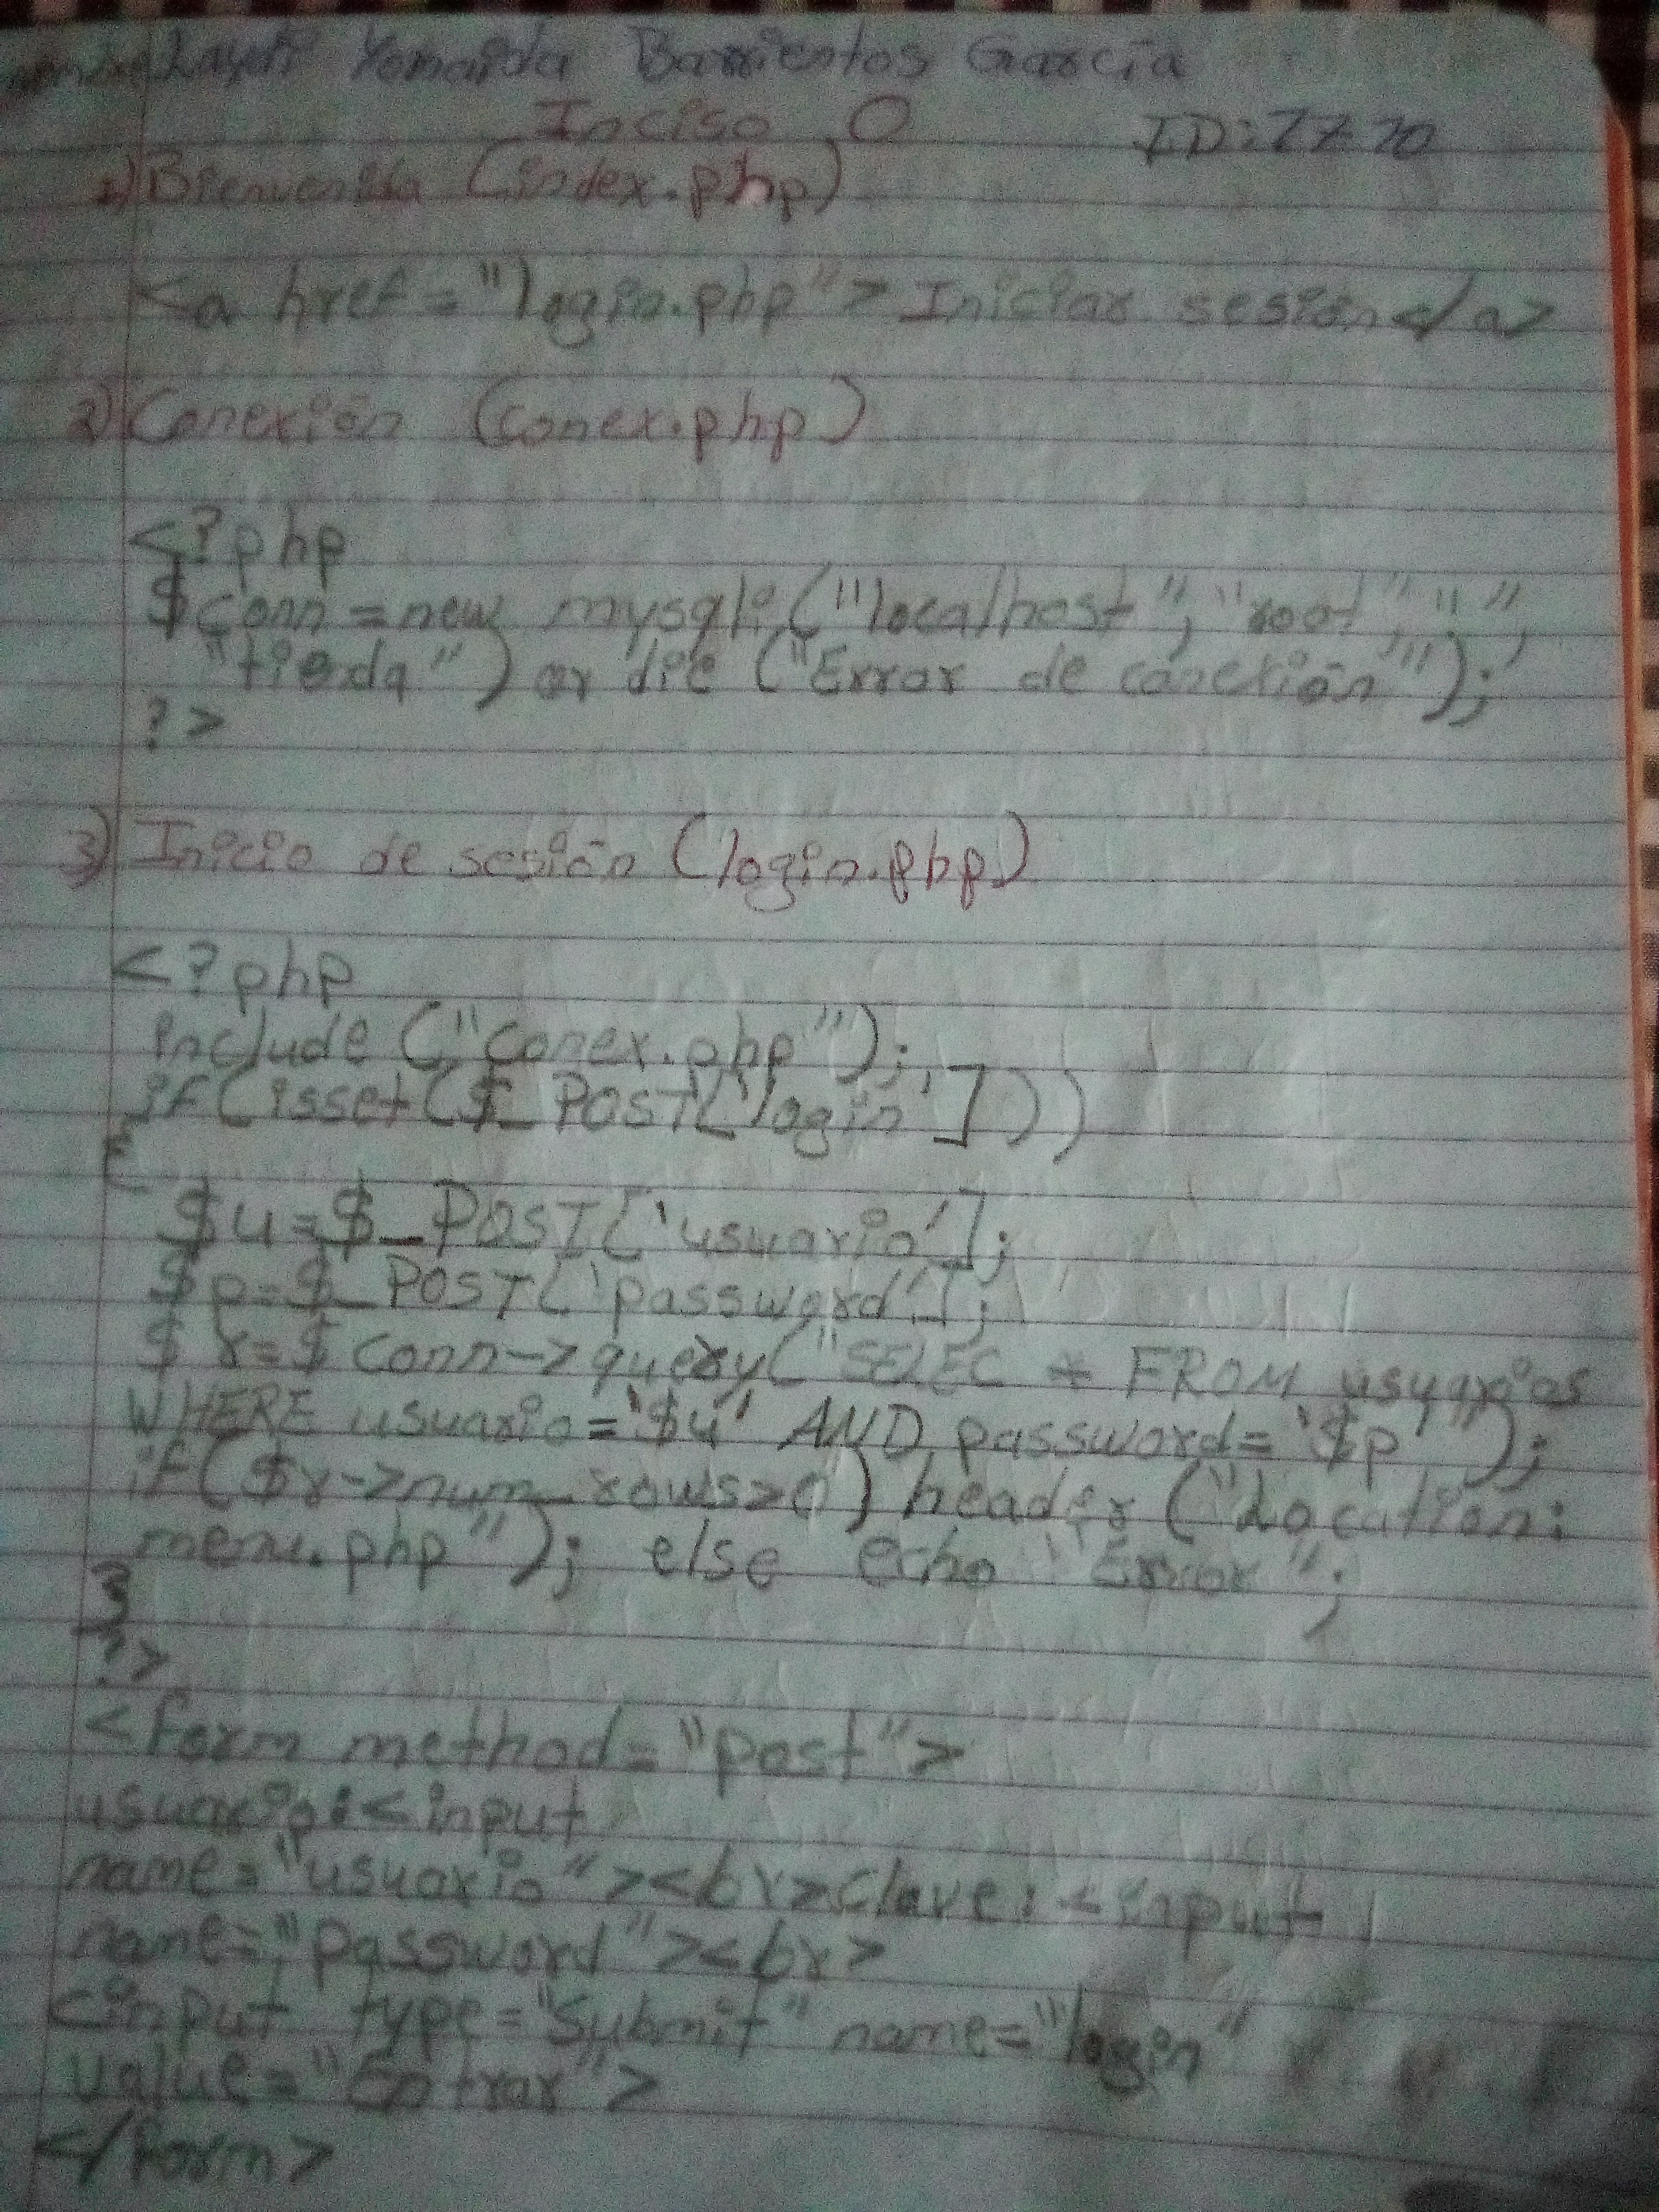 Yomaida Barrientos García
Inciso O
ID: 7770
1) Bienvenida (index.php)
<a href="login.php"> Iniciar sesión</a>
2) Conexión (conex.php)
<?php
$conn=new mysqli("localhost","root","",
"tienda") or die ("Error de conexión");
?>
3) Inicio de sesión (login.php)
<?php
include ("conex.php");
if(isset($_POST['login']))
{
$u=$_POST['usuario'];
$p=$_POST['password'];
$r=$conn->query("SELEC * FROM usuarios
WHERE usuario='$u' AND password='$p'");
if($r->num_rows>0) header ("Location:
menu.php"); else echo "Error";
}
?>
<form method="post">
usuario:<input
name="usuario"><br>Clave:<input
name="password"><br>
<input type="Submit" name="login"
value="Entrar">
</form>